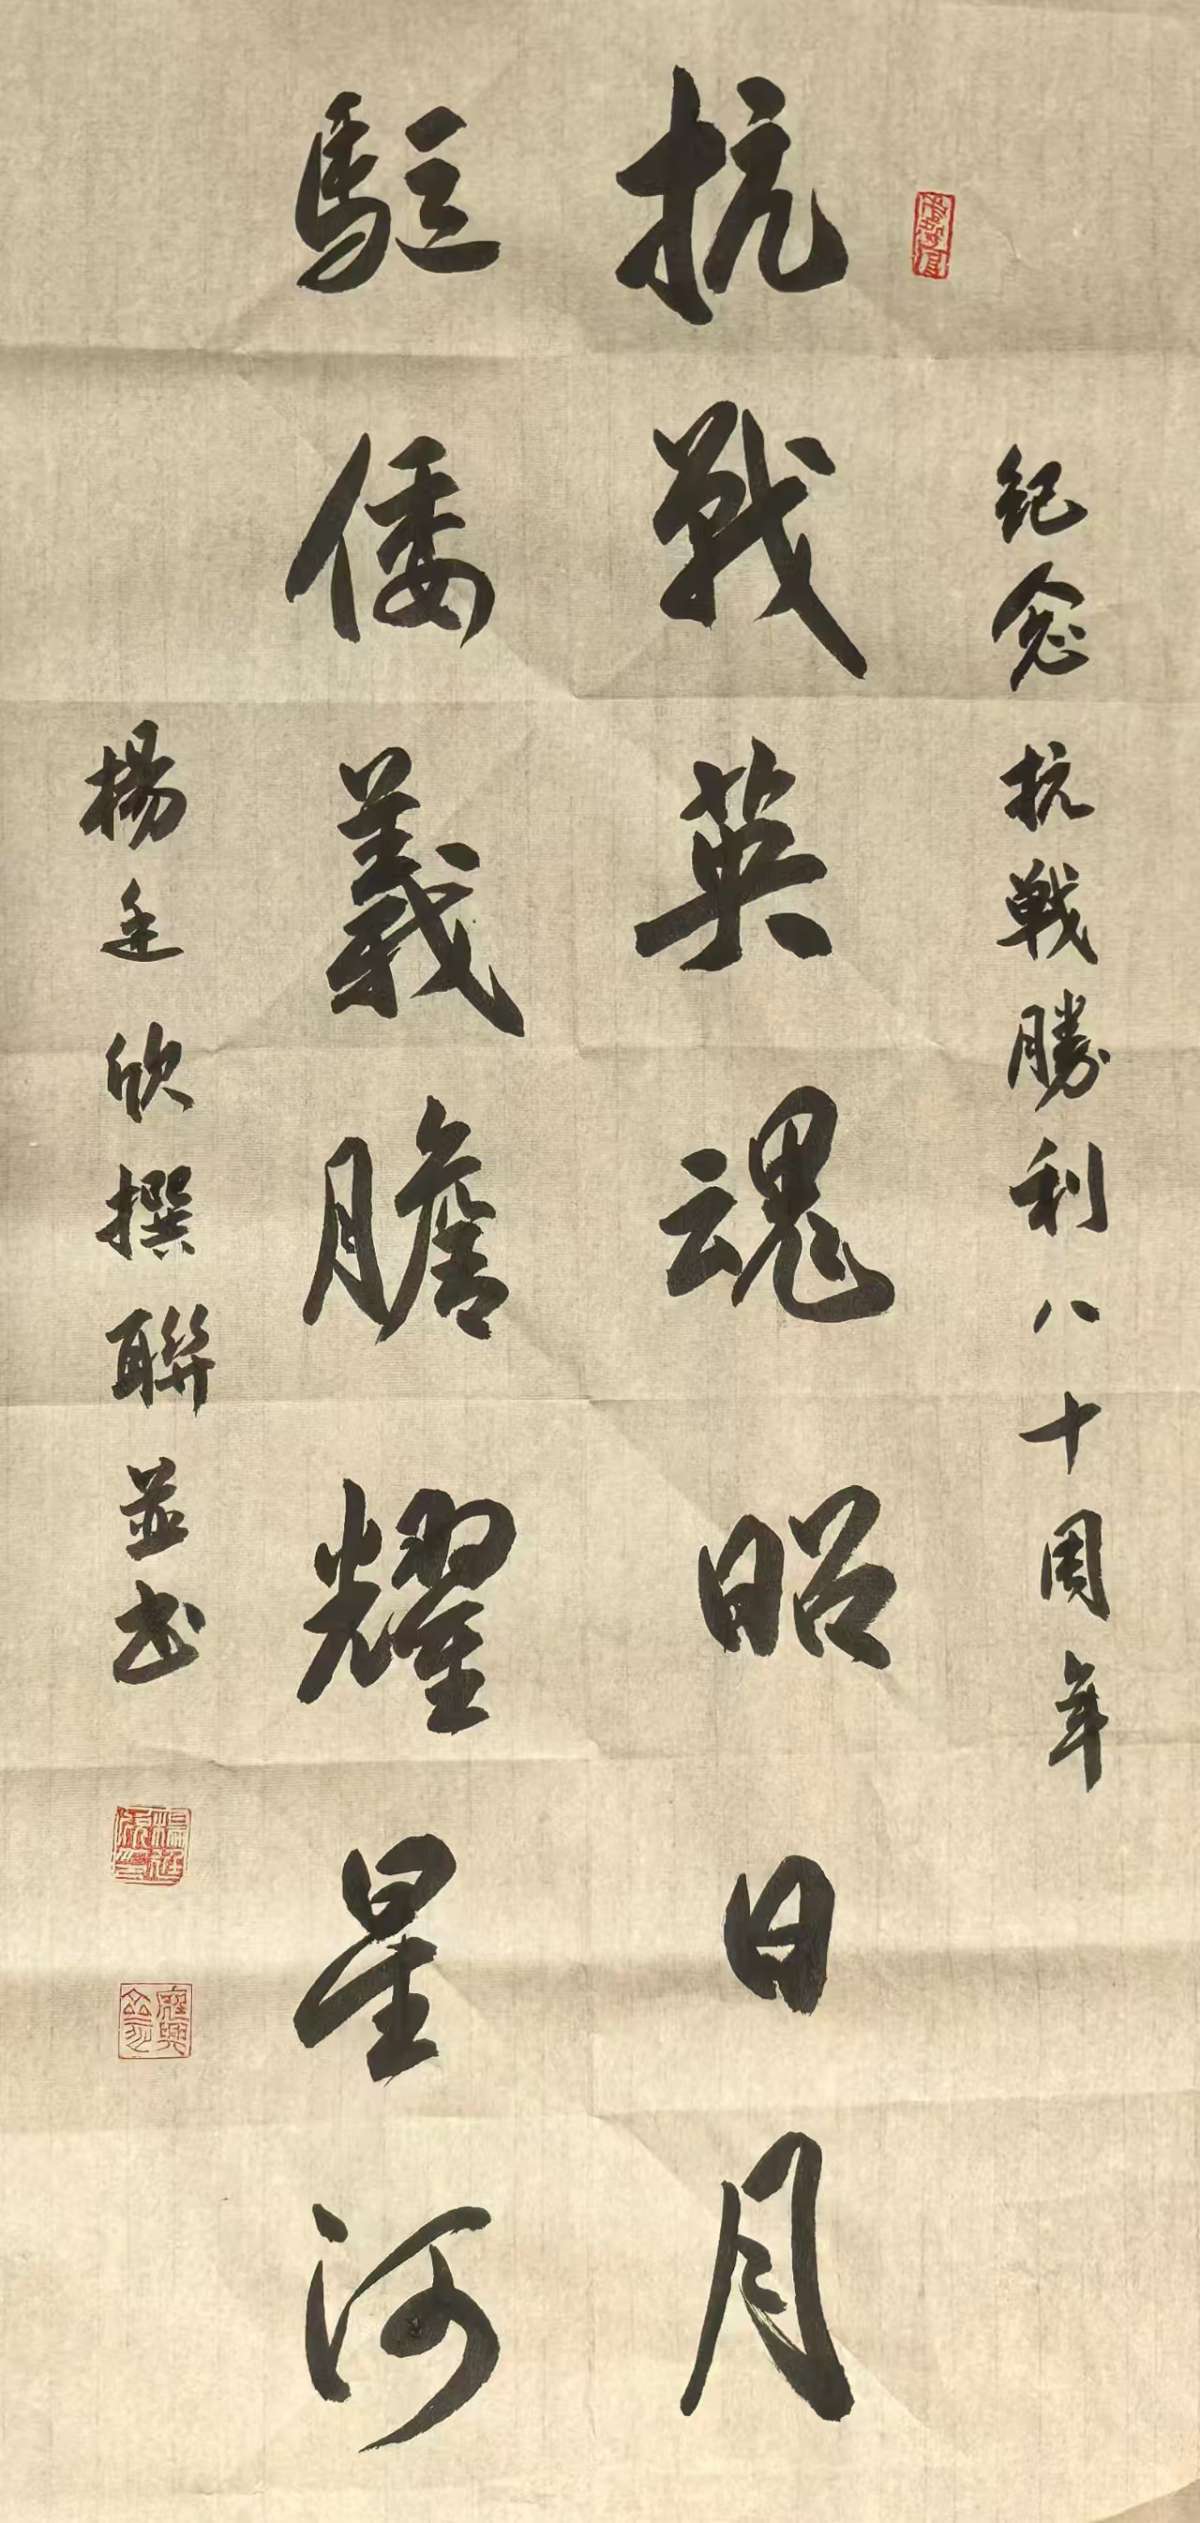 紀念抗戰勝利八十周年
抗戰英魂昭日月
駈倭義膽耀星河
楊廷欣撰聯並書
楊廷欣印